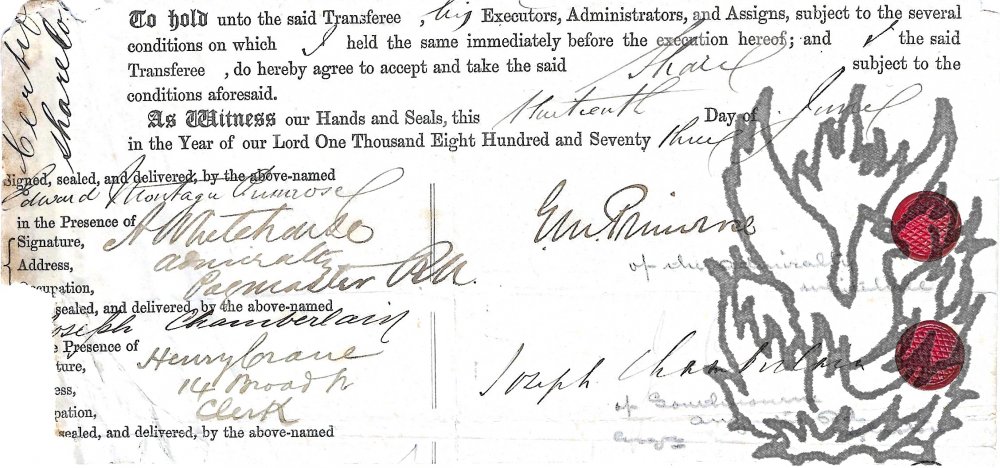 To hold unto the said Transferee , his Executors, Administrators, and Assigns, subject to the several
conditions on which I held the same immediately before the execution hereof; and I the said
Transferee , do hereby agree to accept and take the said Share subject to the
conditions aforesaid.
As Witness our Hands and Seals, this thirteenth Day of
in the Year of our Lord One Thousand Eight Hundred and Seventy three
Signed, sealed, and delivered, by the above-named
Edward Montagu Primrose
in the Presence of
Signature, A Whitehouse
Address, Admiralty
Occupation, Paymaster R.N.
E.M. Primrose
of the Admiralty
sealed, and delivered, by the above-named
Joseph Chamberlain
Presence of
ture, Henry Crane
ess, 14 Broad St
pation, Clerk
Joseph Chamberlain
of
sealed, and delivered, by the above-named